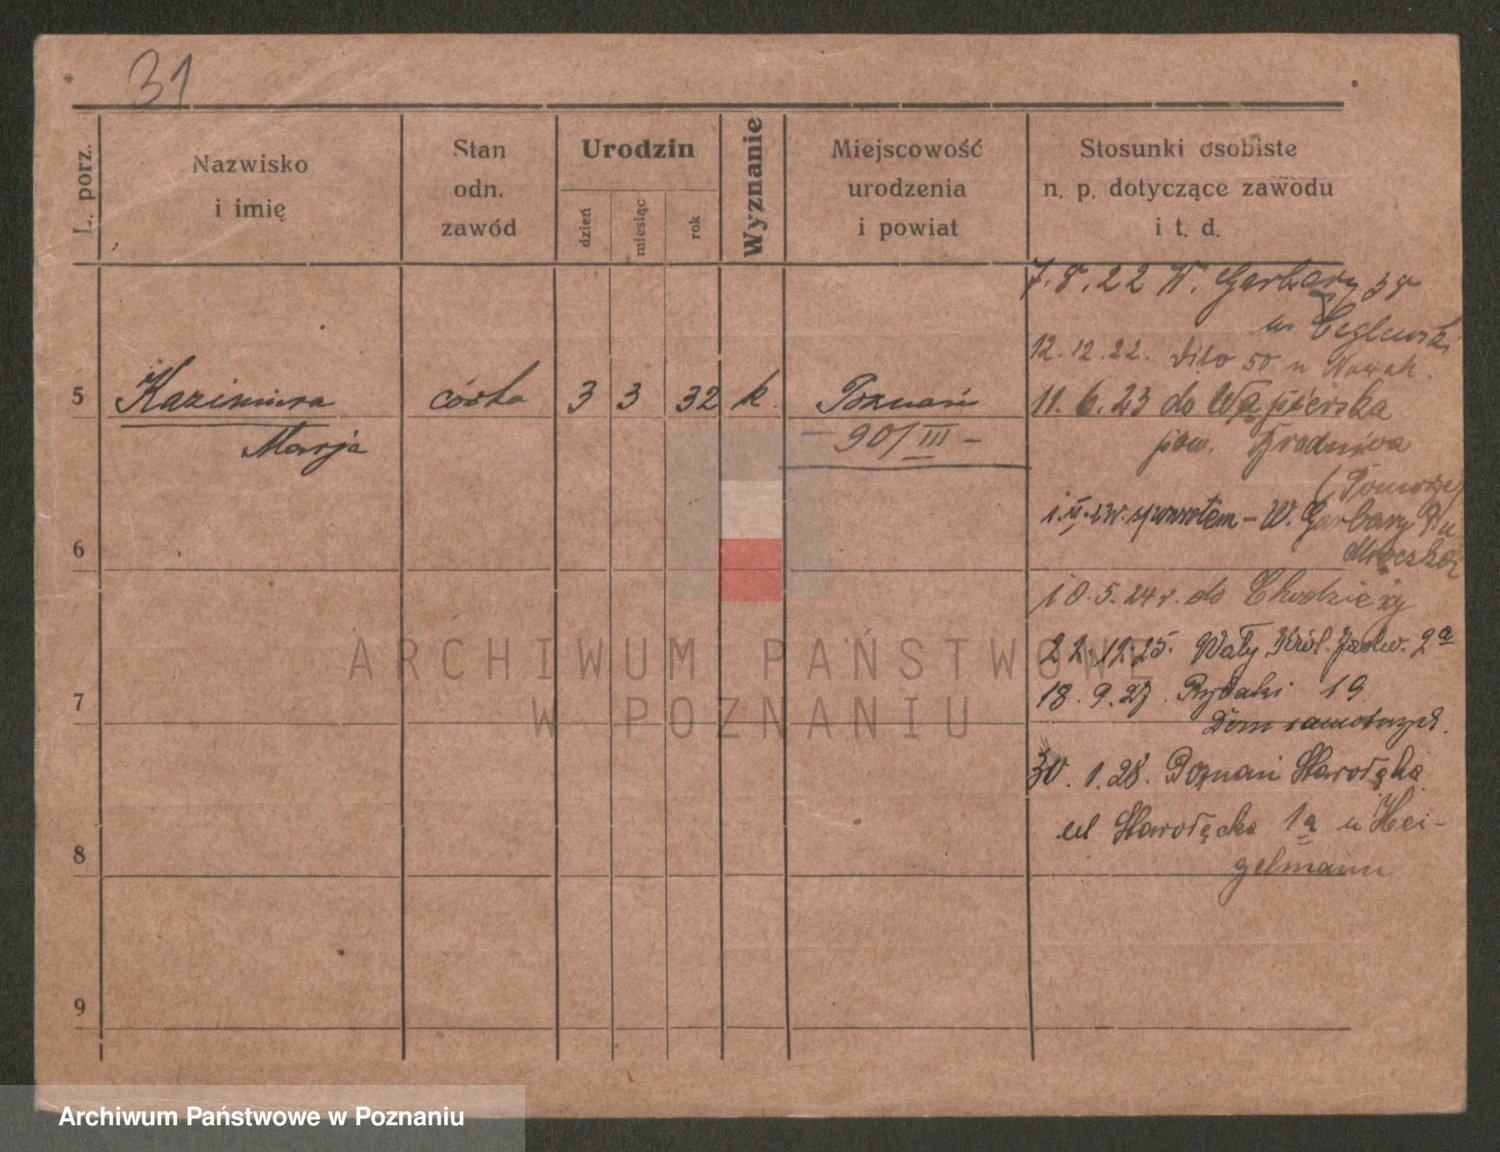 31
L. porz.
Nazwisko
i imię
Stan
odn.
zawód
Urodzin
dzień
miesiąc
rok
Wyznanie
Miejscowość
urodzenia
i powiat
Stosunki osobiste
n. p. dotyczące zawodu
i t. d.
7.8.22 W. Garbary 38
12.12.22. dito 50 u Nowak.
5 Kazimiera córka 3 3 32 k. Poznań
Marja
– 90/III –
11.6.23 do Wąpierska
pow. Brodnica
(Pomorze)
spowrotem – W. Garbary
Mroczkoz
10.5.24 r. do Chodzieży
22.12.25. Wały Król. Jadw. 2a
18.9.27. Rybaki 19
Dom samotnych.
30.1.28. Poznań Starołęka
ul Starołęcka 1a u Hei-
gelmann
6
7
8
9
ARCHIWUM PAŃSTWOWE
W POZNANIU
Archiwum Państwowe w Poznaniu